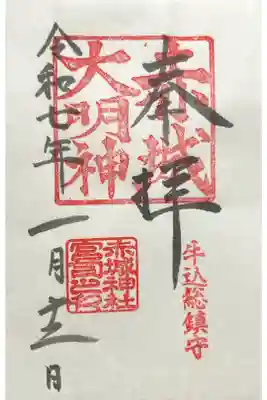 奉拝
赤城
大明神
牛込総鎮守
赤城神社
宮司之印
令和七年
一月 日